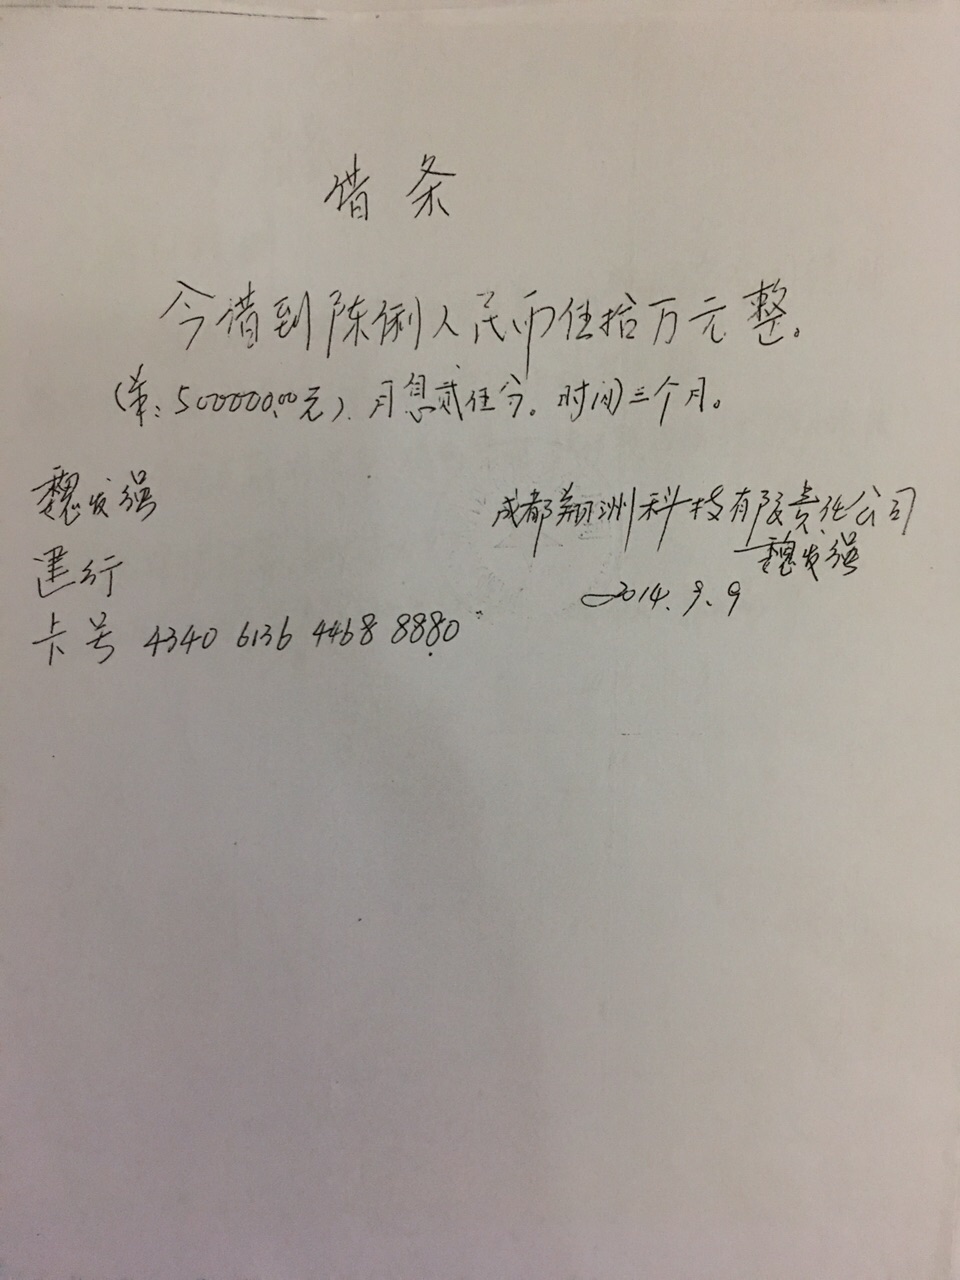 借条
今借到陈俐人民币伍拾万元整。
(￥:500000.00元).月息贰伍分。时间三个月。
魏发强
建行
卡号 4340 6136 4468 8880
成都翔洲科技有限责任公司
魏发强
2014.9.9